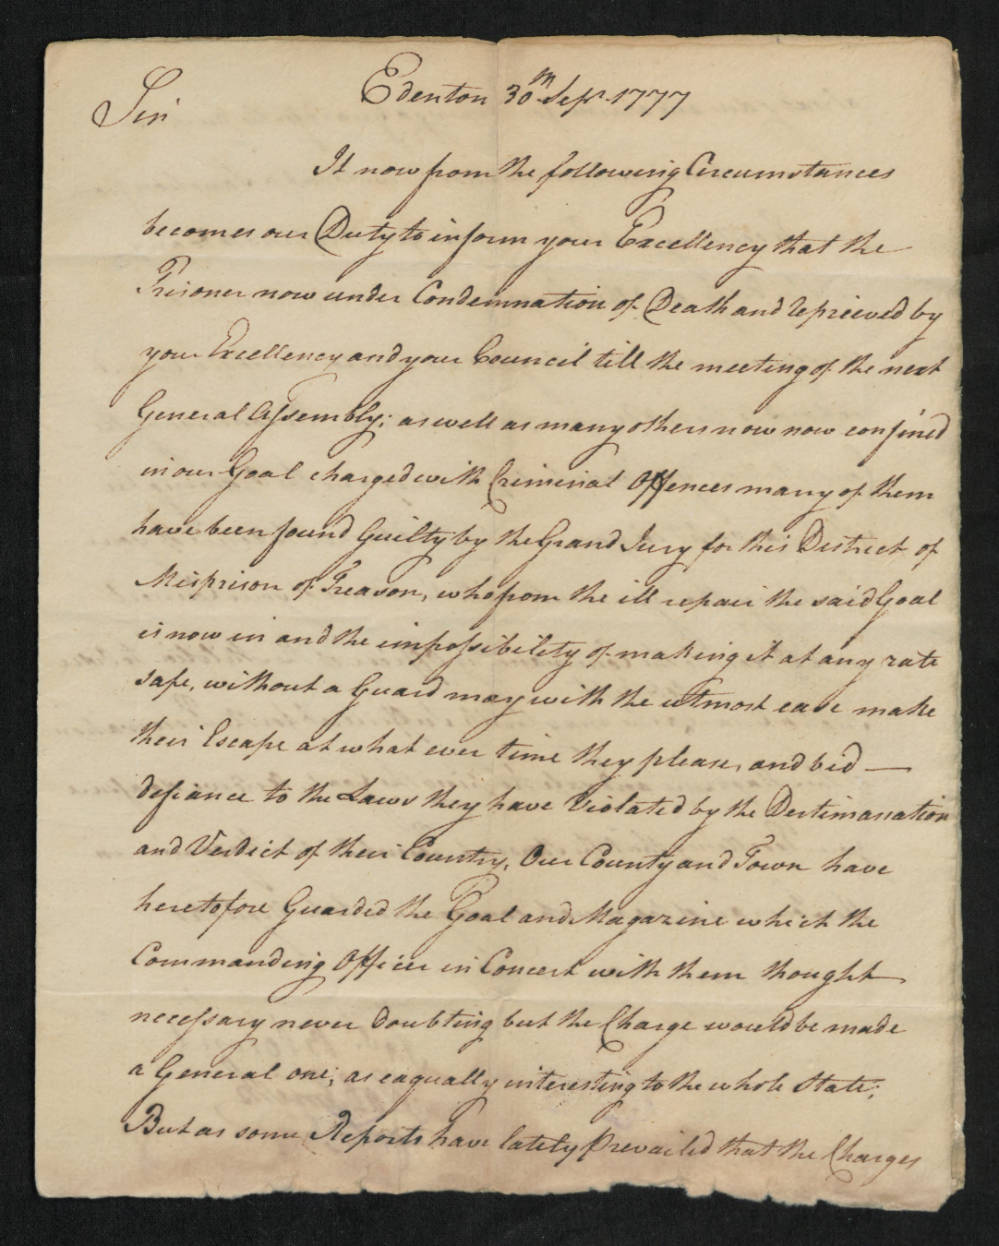 Edenton 30th Sepr. 1777
Sir
It now from the following Circumstances
becomes our Duty to inform your Excellency that the
Prisoner now under Condemnation of Death and repreived by
your Excellency and your Council till the meeting of the next
General Assembly; as well as many others now now confined
in our Goal charged with Criminal Offences many of them
have been found Guilty by the Grand Jury for this District of
Misprison of Treason, who from the ill repair the said Goal
is now in and the impossibility of making it at any rate
safe, without a Guard may with the utmost ease make
their Escape at what ever time they please, and bid —
defiance to the Laws they have Violated by the Dertimanation
and Verdict of their Country, Our County and Town have
heretofore Guarded the Goal and Magazine which the
Commanding Officer in Concert with them thought
necessary never doubting but the Charge would be made
a General one; as eaqually interesting to the whole State;
But as some Reports have lately prevailed that the Charges